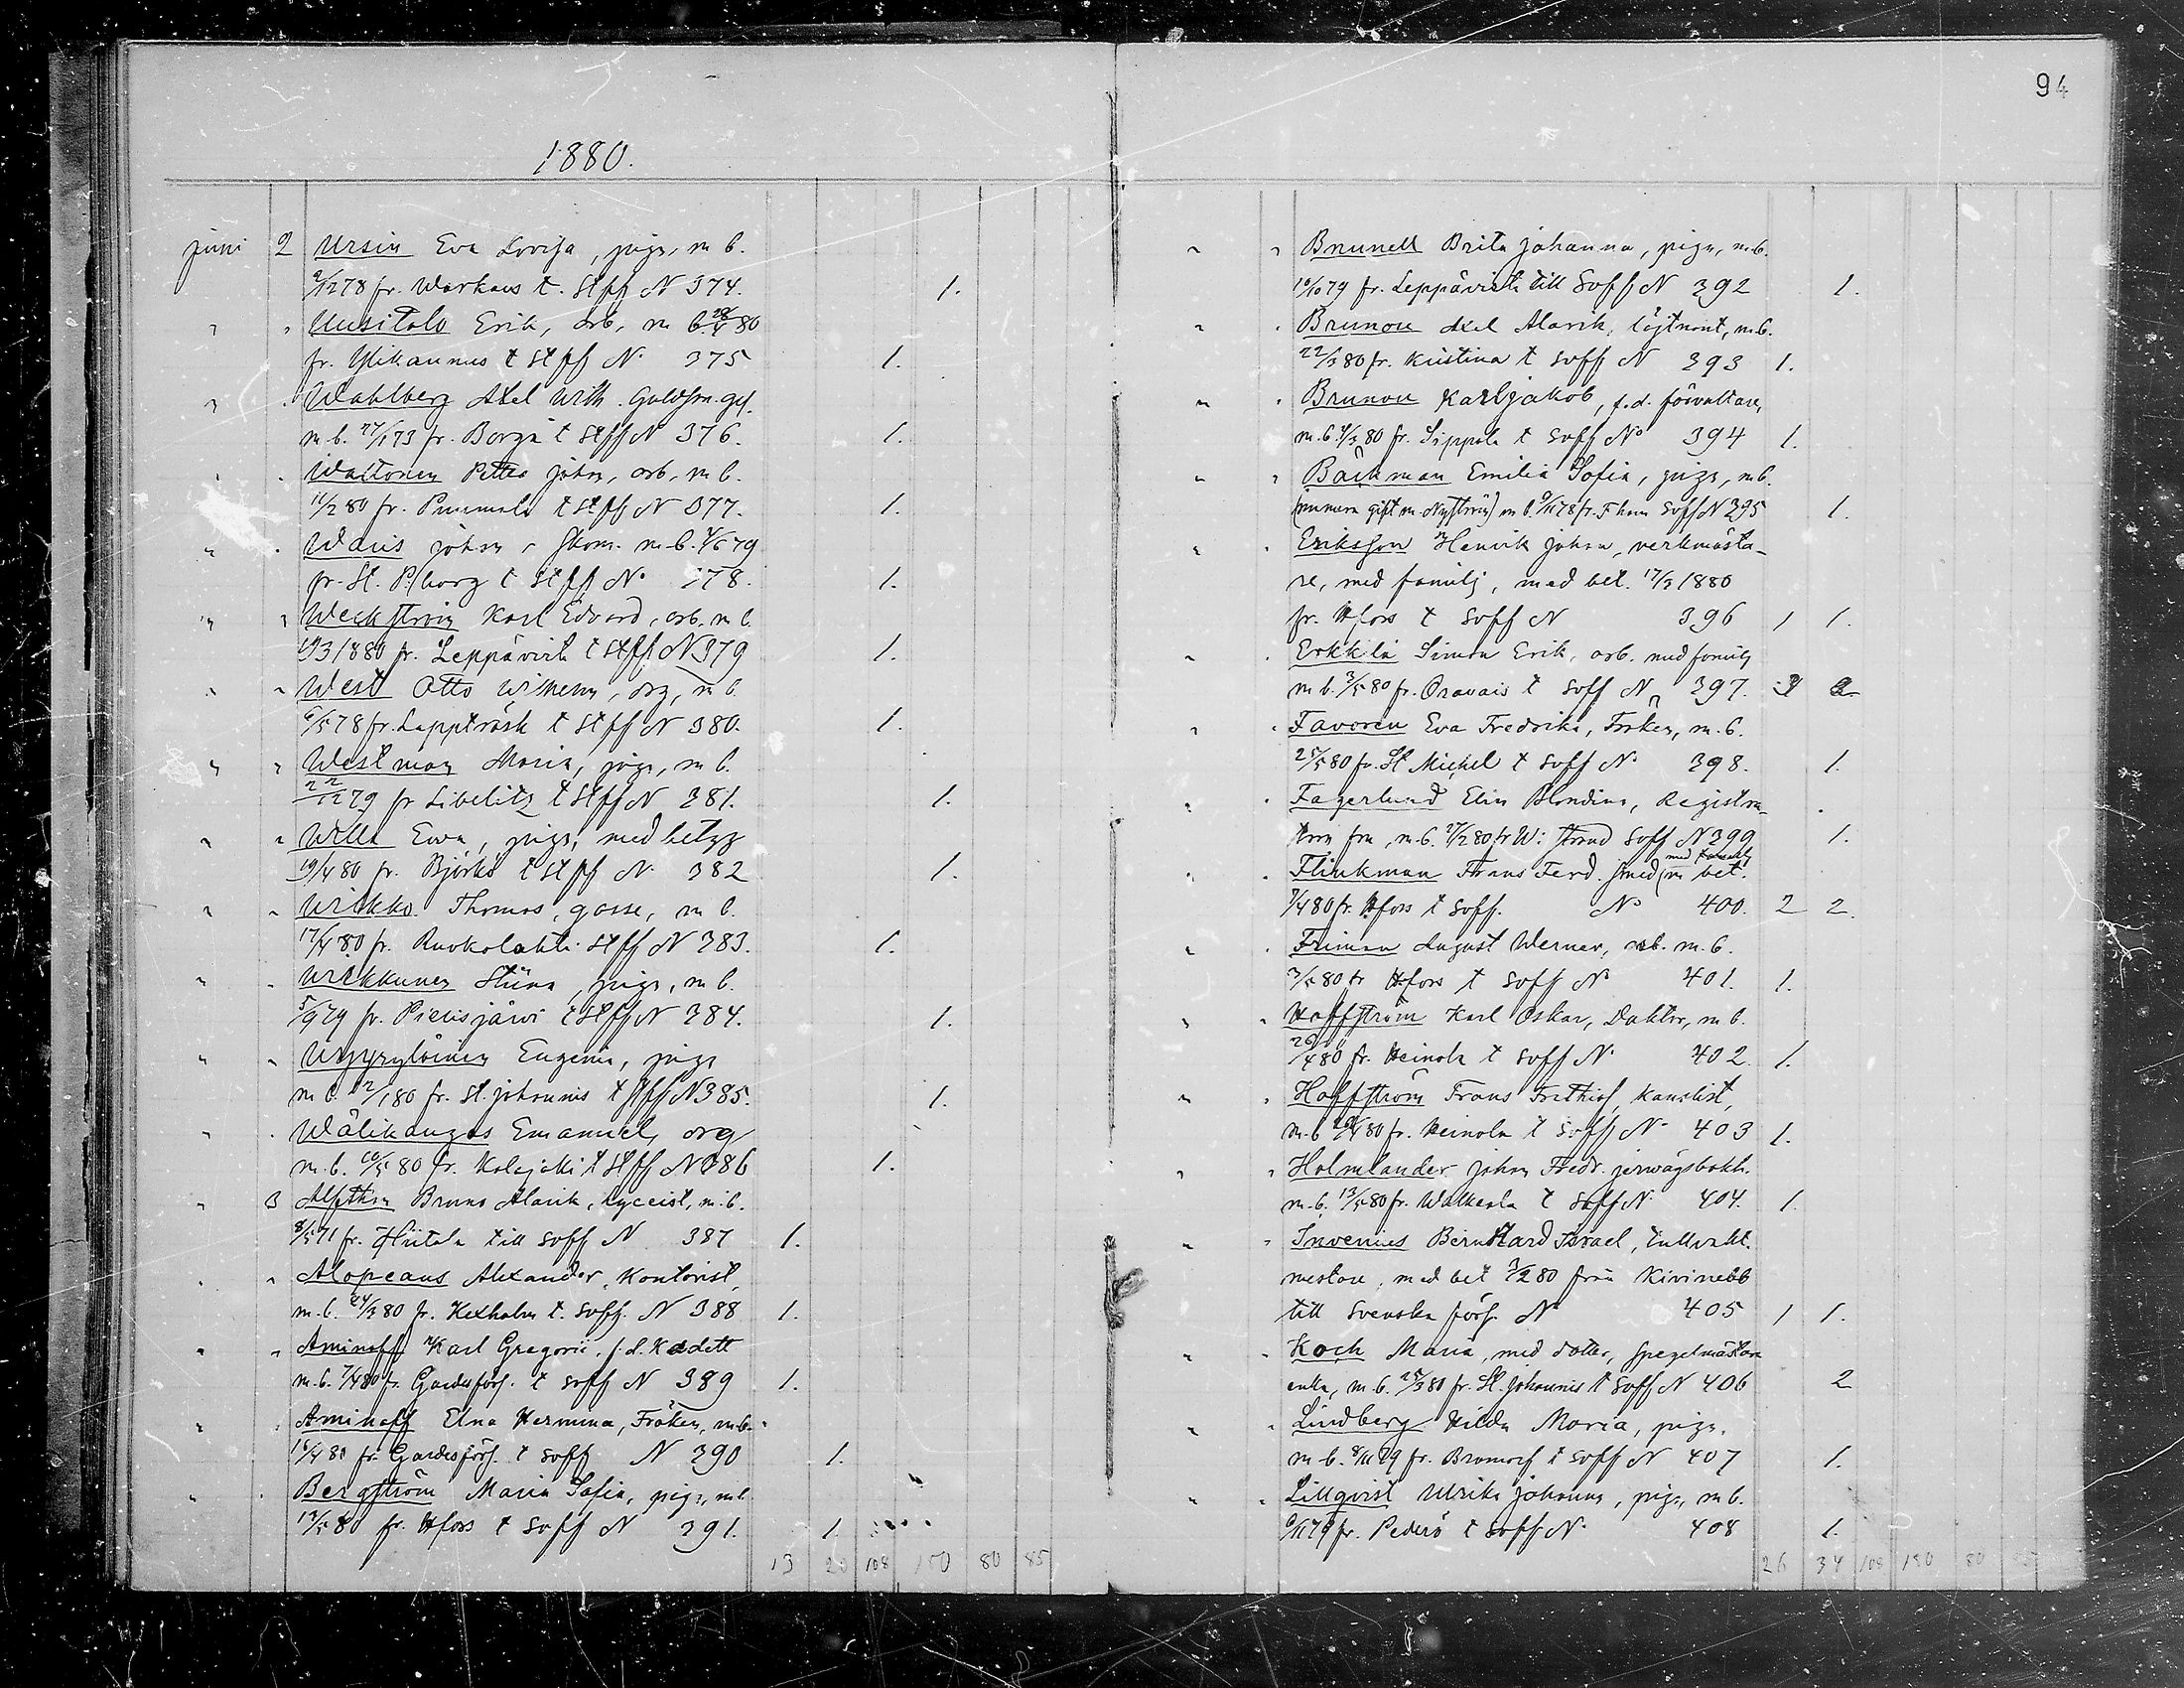 94
1880.
juni 2 Ursin Eva Lovisa, piga, m b.
9/12 78 fr. Warkaus t. Stff N 374. 1.
" " Uusitalo Erik, arb, m b. 28/4 80
fr. Ylikannus t Stff N. 375 1.
" " Wahlberg Axel Wilh. Guldsm. ges.
m. b. 27/1 73 fr. Borgå t Stff N 376. 1.
" " Waltonen Petter Johan, arb, m b.
11/2 80 fr. Pummala t Stff N 377. 1.
" " Wanis Johan, skom. m. b. 4/6 79
fr. St. P.borg t Stff N. 378. 1.
" " Weckström Karl Edvard, arb. m b.
10/3 1880 fr. Leppävirta t Stff N 379 1.
" " West Otto Wilhelm, arg, m b.
6/5 78 fr. Lappträsk t Stff N 380. 1.
" " Westman Maria, piga, m b.
22/12 79 fr Libelitz t Stff N 381. 1.
" " Willa Ewa, piga, med betyg
19/4 80 fr. Björkö t Stff N. 382 1.
" " Wirkko Thomas, gosse, m b.
17/4 80 fr. Ruokolahti Stff N 383. 1.
" " Wirkkunen Stiina, piga, m b.
5/9 79 fr. Pielisjärwi t Stff N 384. 1.
" " Eugenia, piga
m b. 12/1 80 fr. St. Johannis t Stff N 385. 1.
" " Wälikangas Emanuel, arg
m. b. 10/5 80 fr. Kalajoki t Stff N 386 1.
" 3 Alfthan Bruno Alarik, lyceist, m. b.
8/5 71 fr. Hiitola till Soff N 387 1.
" " Alopeaus Alexander, Kontorist,
m. b. 24/3 80 fr. Kexholm t. Soff. N 388 1.
" " Aminoff Karl Gregorii, f. d. Kadett
m. b. 7/4 80 fr. Gardesförs. t Soff N 389 1.
" " Aminoff Elna Hermina, Fröken, m. b.
16/4 80 fr. Gardesförs. t Soff N 390 1.
" " Bergström Maria Sofia, piga, m b
12/5 80 fr. Hfors t Soff N 391. 1.
13 20 108 180 80 85
" " Brunell Brita Johanna, piga, m. b.
10/10 79 fr. Leppävirta till Soff N 392 1.
" " Brunou Axel Alarik, löjtnant, m. b.
22/3 80 fr. Kristina t Soff N 393 1.
" " Brunou Karl Jakob, f. d. förvaltare,
m. b. 4/3 80 fr. Sippola t Soff No 394 1.
" " Bäckman Emilia Sofia, piga, m b.
(numera gift m. Nyström) m b. 9/11 78 fr. F hamn Soff N 395 1.
" " Eriksson Henrik Johan, verkmästa-
re, med familj, med bet. 17/3 1880
fr. Hfors t Soff N 396 1 1.
" " Erkkilä Simon Erik, arb. med familj
m b. 3/5 80 fr. Oravais t Soff N 397. 3 2
" " Favorin Eva Fredrika, Fröken, m. b.
25/5 80 fr. St Michel t Soff N. 398. 1.
" " Fagerlund Elin Blondina, Registra-
tors fru, m. b. 27/2 80 fr W: strand Soff N 399 1.
" " Flinkman Frans Ferd. smed med familj m bet.
7/4 80 fr. Hfors t Soff. No 400. 2 2.
" " Friman August Werner, arb. m. b.
3/5 80 fr Hfors t Soff No 401. 1.
" " Hoffström Karl Oskar, Doktor, m b.
26/4 80 fr. Heinola t Soff N. 402. 1.
" " Hoffström Frans Frithiof, Kanslist,
m. b 26/4 80 fr. Heinola t Soff N. 403 1.
" " Holmlander Johan Fredr. jernvägsbokh.
m. b. 13/5 80 fr. Walkeala t Soff N. 404. 1.
" " Invenius Bernhard Israel, tullvakt-
mestare, med bet 3/2 80 från Kivinebb
till Svenska förs. No 405 1 1.
" " Koch Maria, med dotter, Spegelmästare
enka, m. b. 25/3 80 fr. St. Johannis t Soff N 406 2
" " Lindberg Hilda Maria, piga,
m. b. 8/11 79 fr. Bromarf t Soff N 407 1.
" " Lillqvist Ulrika Johanna, piga, m b.
6/11 79 fr. Pedersö t Soff N. 408 1.
26 34 108 180 80 85